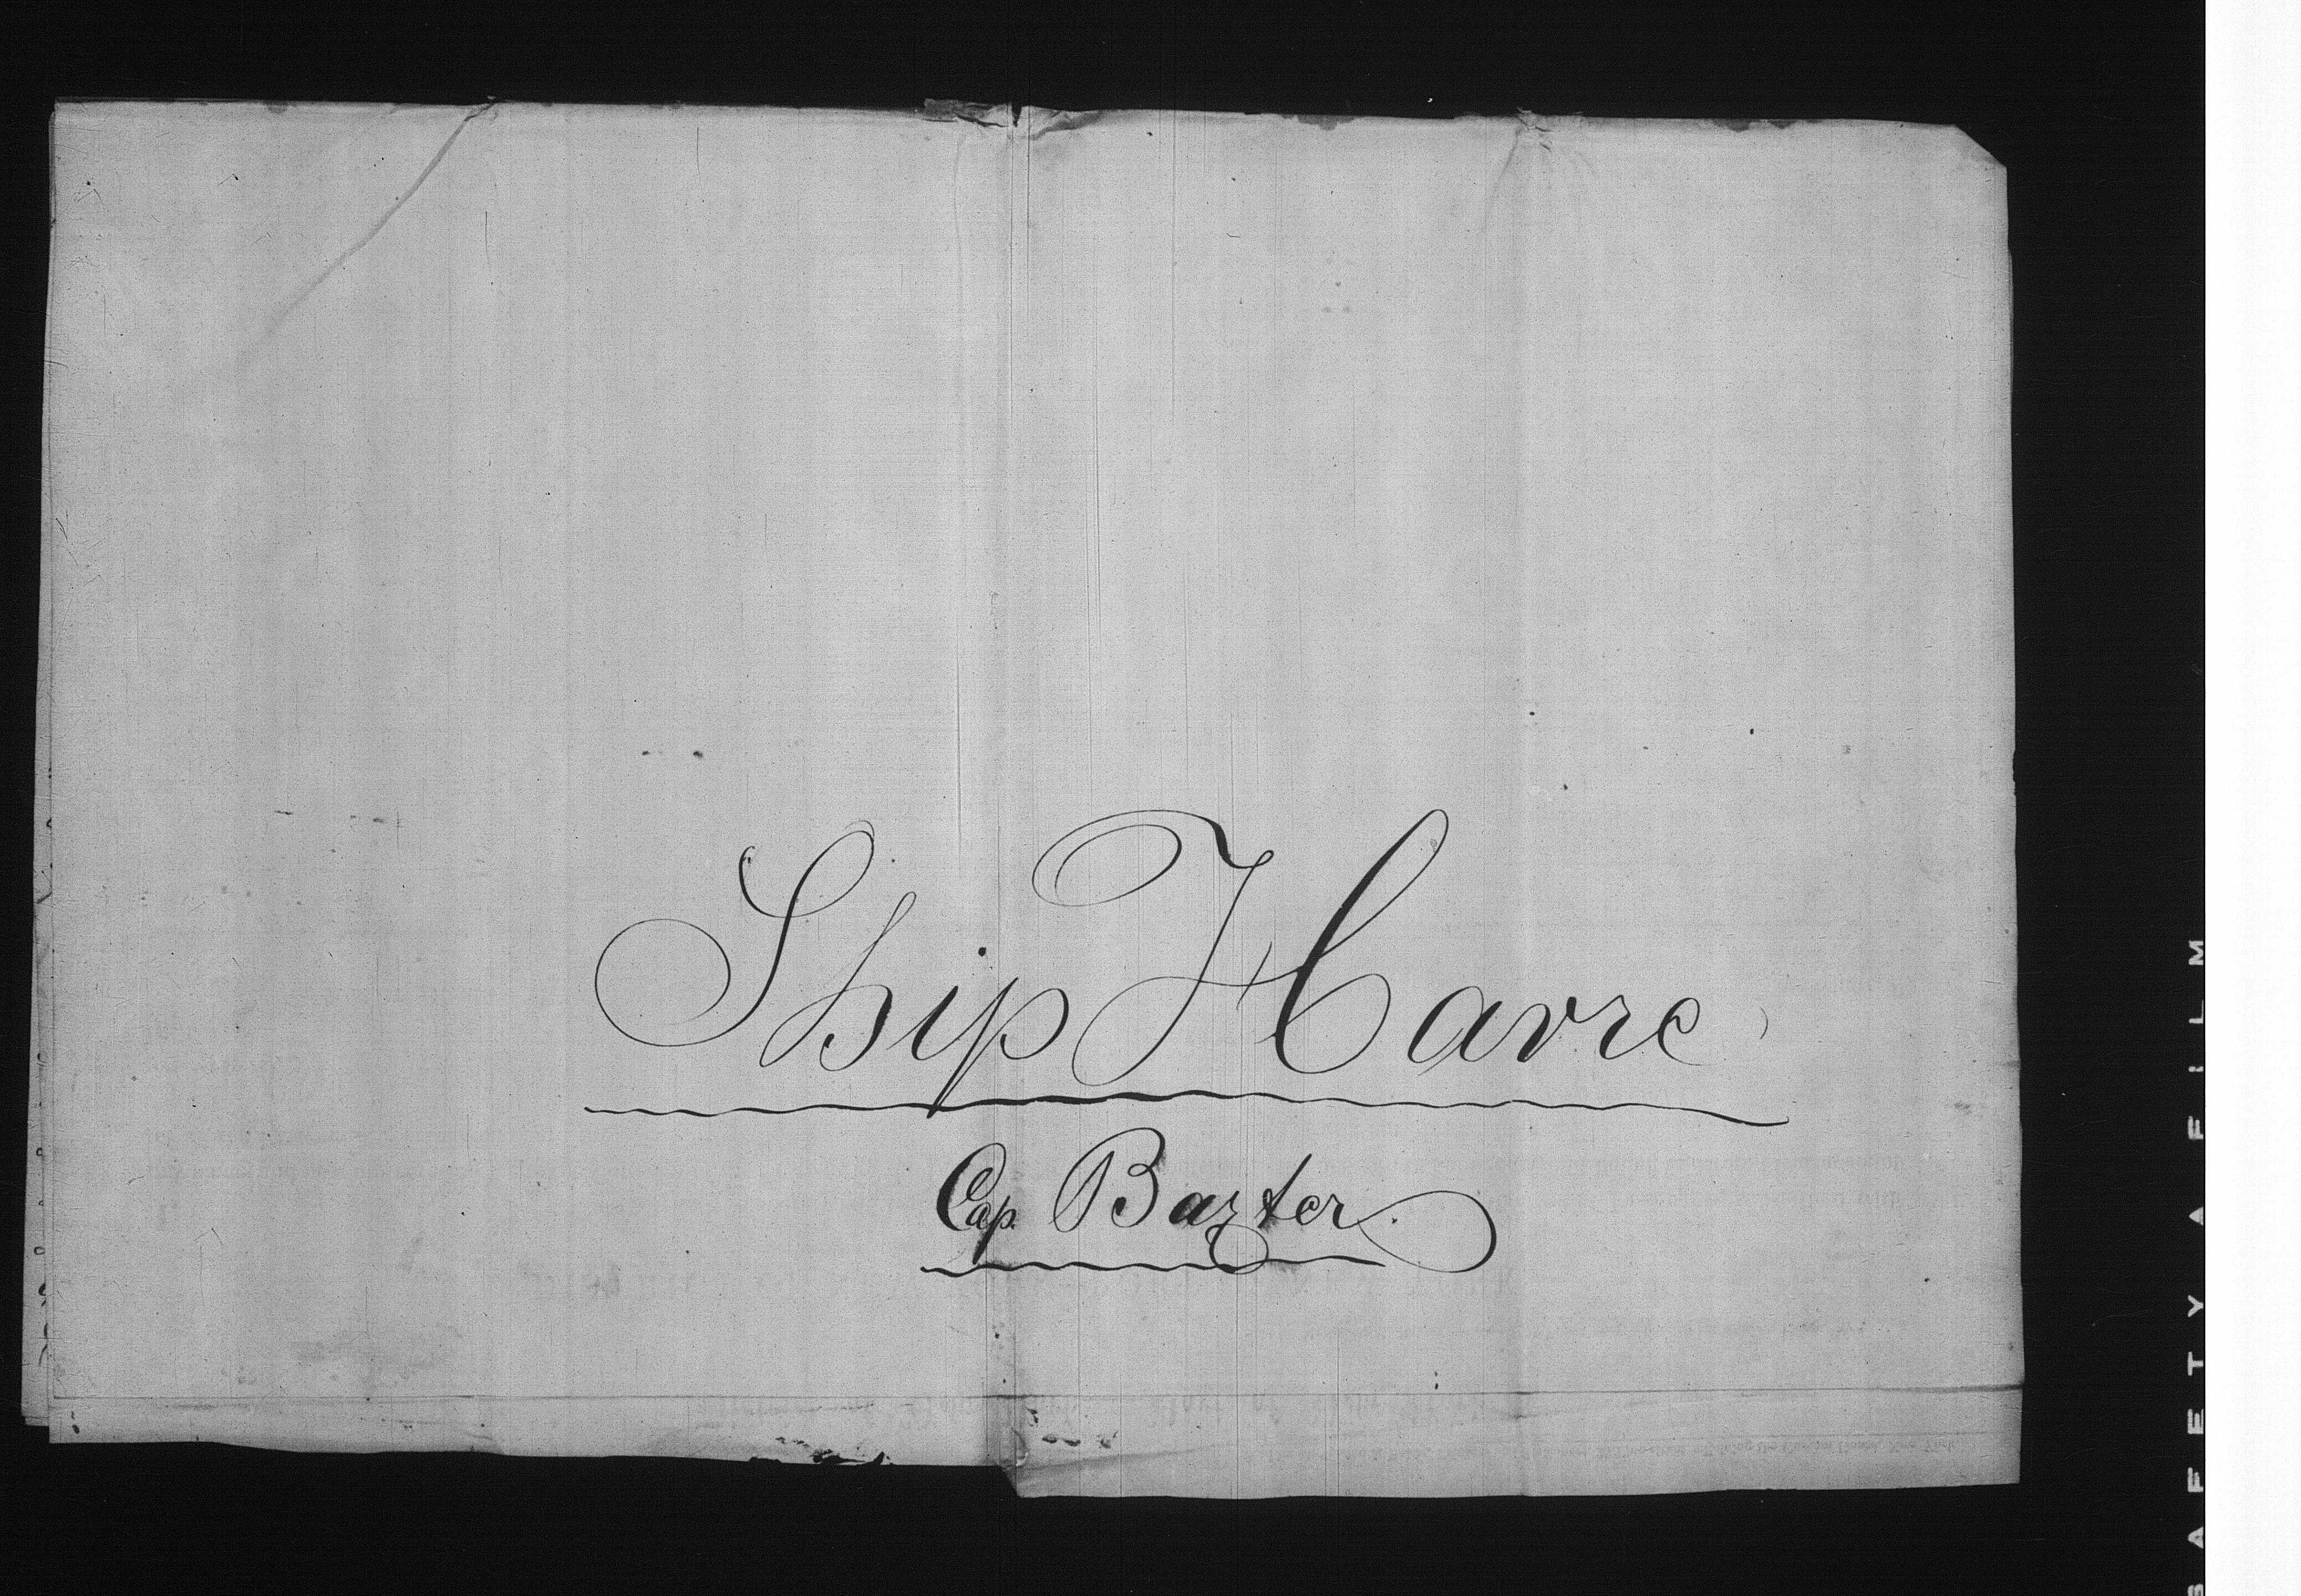 Ship Havre
Cap. Baxter.
SAFETY A FILM